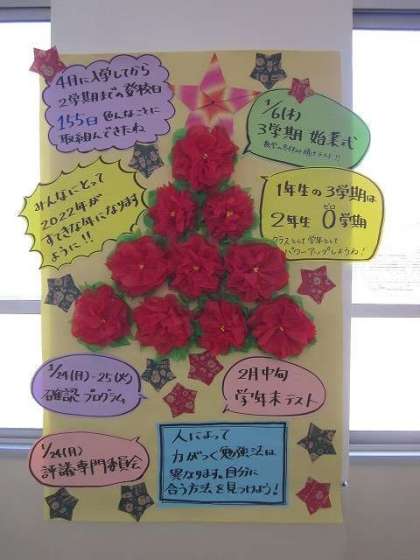 4月に入学してから
2学期までの登校日
155日 色んなことに
取組んできたね
1/6(木)
3学期 始業式
みんなにとって
2022年が
すてきな年になります
ように!!
1年生の3学期は
2年生 0学期
ゼロ
クラスとして学年として
パワーアップしようね!
1/24(月)-25(火)
確認プログラム
2月中旬
学年末テスト
1/24(月)
評議専門委員会
人によって
力がつく勉強法は
異なります。自分に
合う方法を見つけよう!